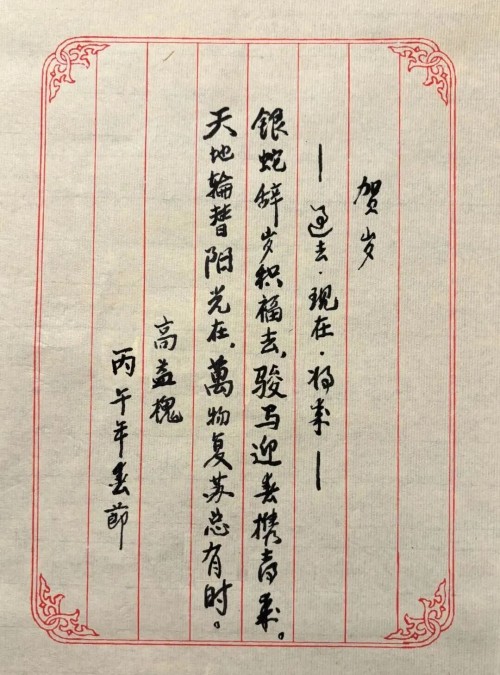 贺岁
——过去·现在·将来——
银蛇辞岁积福去，骏马迎春携喜来。
天地輪替阳光在，萬物复苏总有时。
高益槐
丙午年春節